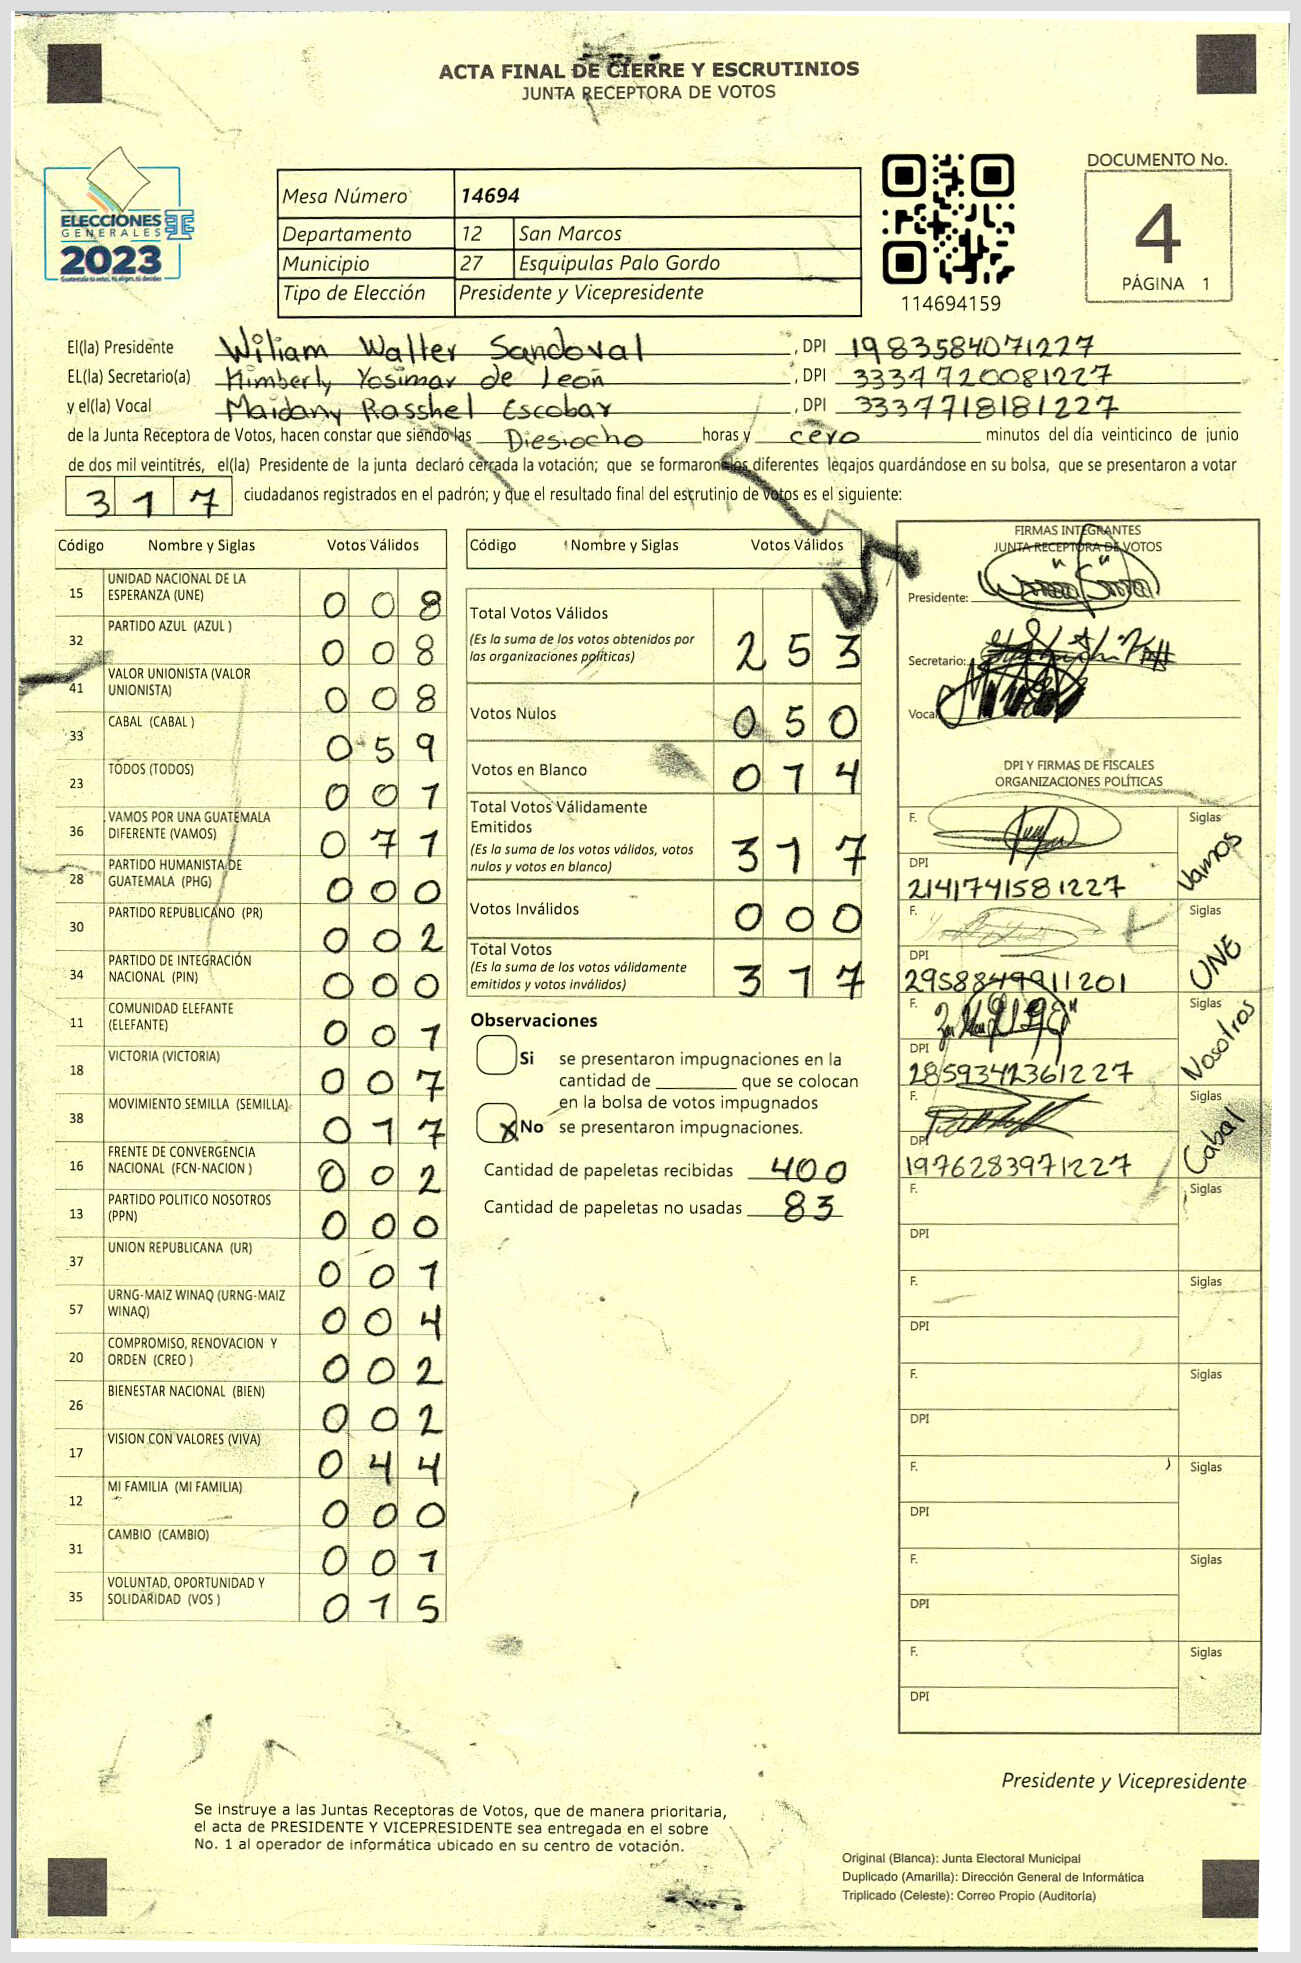 ACTA FINAL DE CIERRE Y ESCRUTINIOS
JUNTA RECEPTORA DE VOTOS
ELECCIONES
GENERALES
2023
Mesa Número 14694
Departamento 12 San Marcos
Municipio 27 Esquipulas Palo Gordo
Tipo de Elección Presidente y Vicepresidente
114694159
DOCUMENTO No.
4
PÁGINA 1
El(la) Presidente Wiliam Walter Sandoval , DPI 1983584071227
EL(la) Secretario(a) Kimberly Yosimar de León , DPI 3337720081227
y el(la) Vocal Maidany Rasshel Escobar , DPI 3337718181227
de la Junta Receptora de Votos, hacen constar que siendo las Diesiocho horas y cero minutos del día veinticinco de junio
de dos mil veintitrés, el(la) Presidente de la junta declaró cerrada la votación; que se formaron los diferentes legajos guardándose en su bolsa, que se presentaron a votar
317 ciudadanos registrados en el padrón; y que el resultado final del escrutinio de votos es el siguiente:
Código Nombre y Siglas Votos Válidos
15 UNIDAD NACIONAL DE LA
ESPERANZA (UNE) 008
32 PARTIDO AZUL (AZUL ) 008
41 VALOR UNIONISTA (VALOR
UNIONISTA) 008
33 CABAL (CABAL ) 059
23 TODOS (TODOS) 001
36 VAMOS POR UNA GUATEMALA
DIFERENTE (VAMOS) 071
28 PARTIDO HUMANISTA DE
GUATEMALA (PHG) 000
30 PARTIDO REPUBLICANO (PR) 002
34 PARTIDO DE INTEGRACIÓN
NACIONAL (PIN) 000
11 COMUNIDAD ELEFANTE
(ELEFANTE) 001
18 VICTORIA (VICTORIA) 007
38 MOVIMIENTO SEMILLA (SEMILLA) 017
16 FRENTE DE CONVERGENCIA
NACIONAL (FCN-NACION ) 002
13 PARTIDO POLITICO NOSOTROS
(PPN) 000
37 UNION REPUBLICANA (UR) 001
57 URNG-MAIZ WINAQ (URNG-MAIZ
WINAQ) 004
20 COMPROMISO, RENOVACION Y
ORDEN (CREO ) 002
26 BIENESTAR NACIONAL (BIEN) 002
17 VISION CON VALORES (VIVA) 044
12 MI FAMILIA (MI FAMILIA) 000
31 CAMBIO (CAMBIO) 001
35 VOLUNTAD, OPORTUNIDAD Y
SOLIDARIDAD (VOS ) 015
Código Nombre y Siglas Votos Válidos
Total Votos Válidos
(Es la suma de los votos obtenidos por
las organizaciones políticas) 253
Votos Nulos 050
Votos en Blanco 014
Total Votos Válidamente
Emitidos
(Es la suma de los votos válidos, votos
nulos y votos en blanco) 317
Votos Inválidos 000
Total Votos
(Es la suma de los votos válidamente
emitidos y votos inválidos) 317
Observaciones
Si se presentaron impugnaciones en la
cantidad de ________ que se colocan
en la bolsa de votos impugnados
x No se presentaron impugnaciones.
Cantidad de papeletas recibidas 400
Cantidad de papeletas no usadas 83
FIRMAS INTEGRANTES
JUNTA RECEPTORA DE VOTOS
Presidente:
Secretario:
Vocal
DPI Y FIRMAS DE FISCALES
ORGANIZACIONES POLÍTICAS
F. Siglas
DPI Vamos
2141741581227
F. Siglas
DPI UNE
2958849911201
F. Siglas
DPI Nosotros
2859342361227
F. Siglas
DPI Cabal
1976283971227
F. Siglas
DPI
F. Siglas
DPI
F. Siglas
DPI
F. Siglas
DPI
F. Siglas
DPI
F. Siglas
DPI
Presidente y Vicepresidente
Se instruye a las Juntas Receptoras de Votos, que de manera prioritaria,
el acta de PRESIDENTE Y VICEPRESIDENTE sea entregada en el sobre
No. 1 al operador de informática ubicado en su centro de votación.
Original (Blanca): Junta Electoral Municipal
Duplicado (Amarilla): Dirección General de Informática
Triplicado (Celeste): Correo Propio (Auditoría)